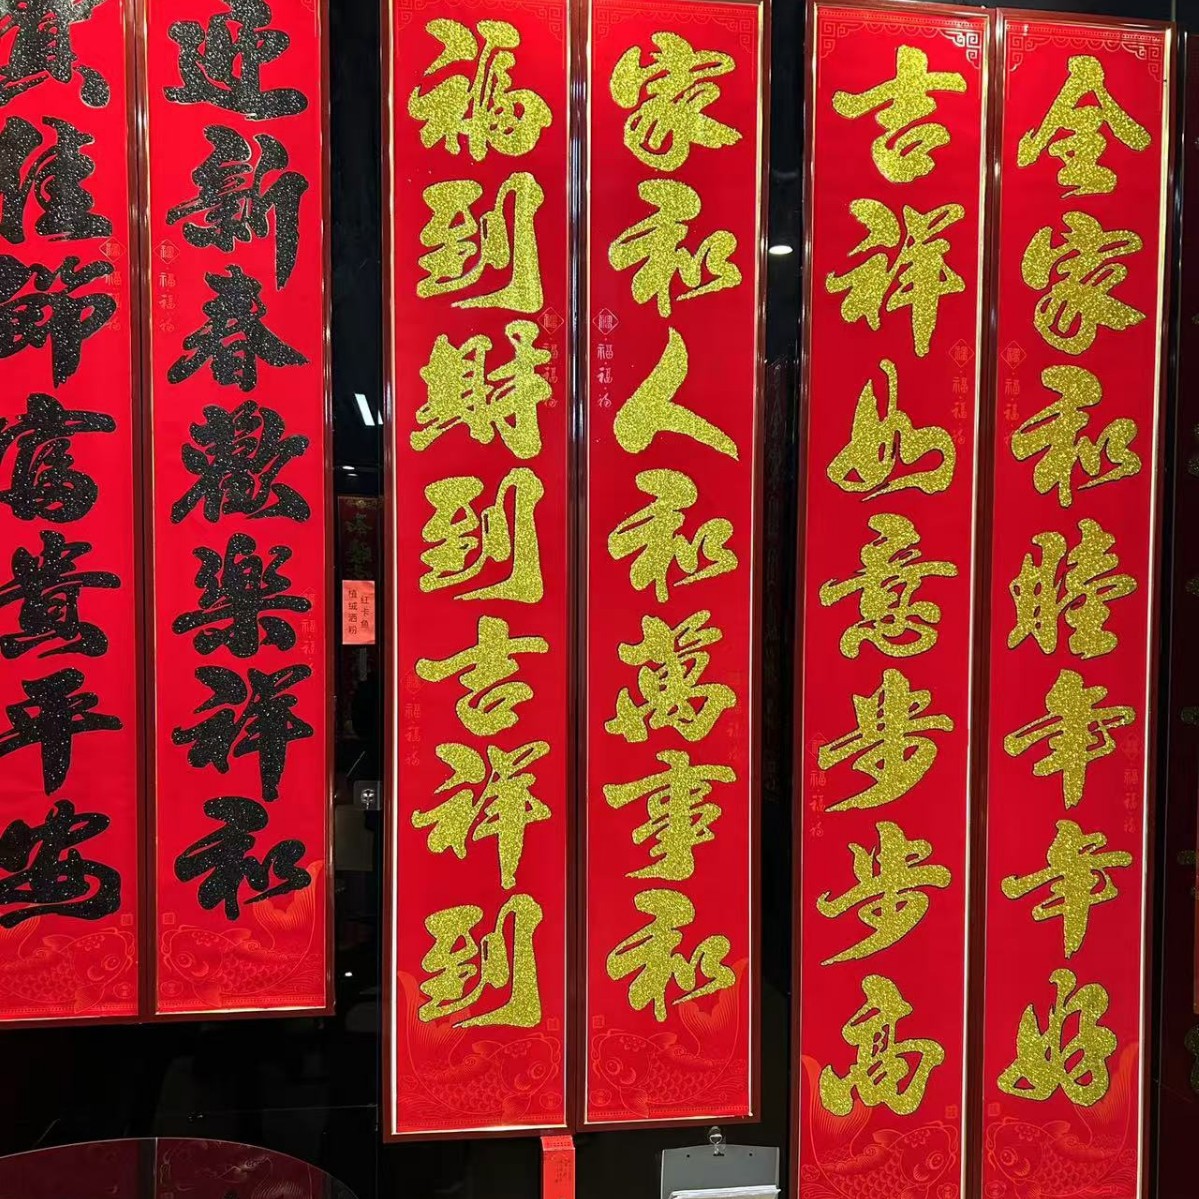 全家和睦年年好
吉祥如意步步高
家和人和萬事和
福到財到吉祥到
红卡鱼
植绒洒粉
迎新春歡樂祥和
賀佳節富貴平安